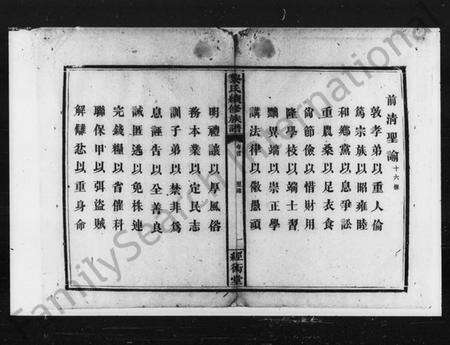 前清聖諭十六條
敦孝弟以重人倫
篤宗族以昭雍睦
和鄉黨以息爭訟
重農桑以足衣食
尚節儉以惜財用
隆學校以端士習
黜異端以崇正學
講法律以儆愚頑
氏續修族譜
經術堂
明禮讓以厚風俗
務本業以定民志
訓子弟以禁非為
息誣告以全善良
誡匿逃以免株連
完錢糧以省催科
聯保甲以弭盜賊
解讎忿以重身命
FamilySearch International